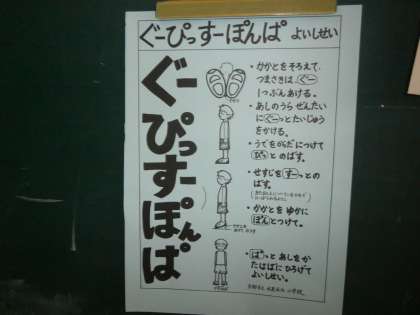 ぐーぴっすーぽんぱ よいしせい
ぐーぴっすーぽんぱ
・かかとをそろえて、
つまさきは、ぐー
1つぶんあける。
・あしのうら ぜんたい
にぐーっとたいじゅう
をかける。
・うでをからだにつけて
ぴっとのばす。
・せすじをすーっとの
ばす。
・かかとを ゆかに
ぽんとつけて。
・ぱっと あしを か
たはばに ひろげて
よいしせい。